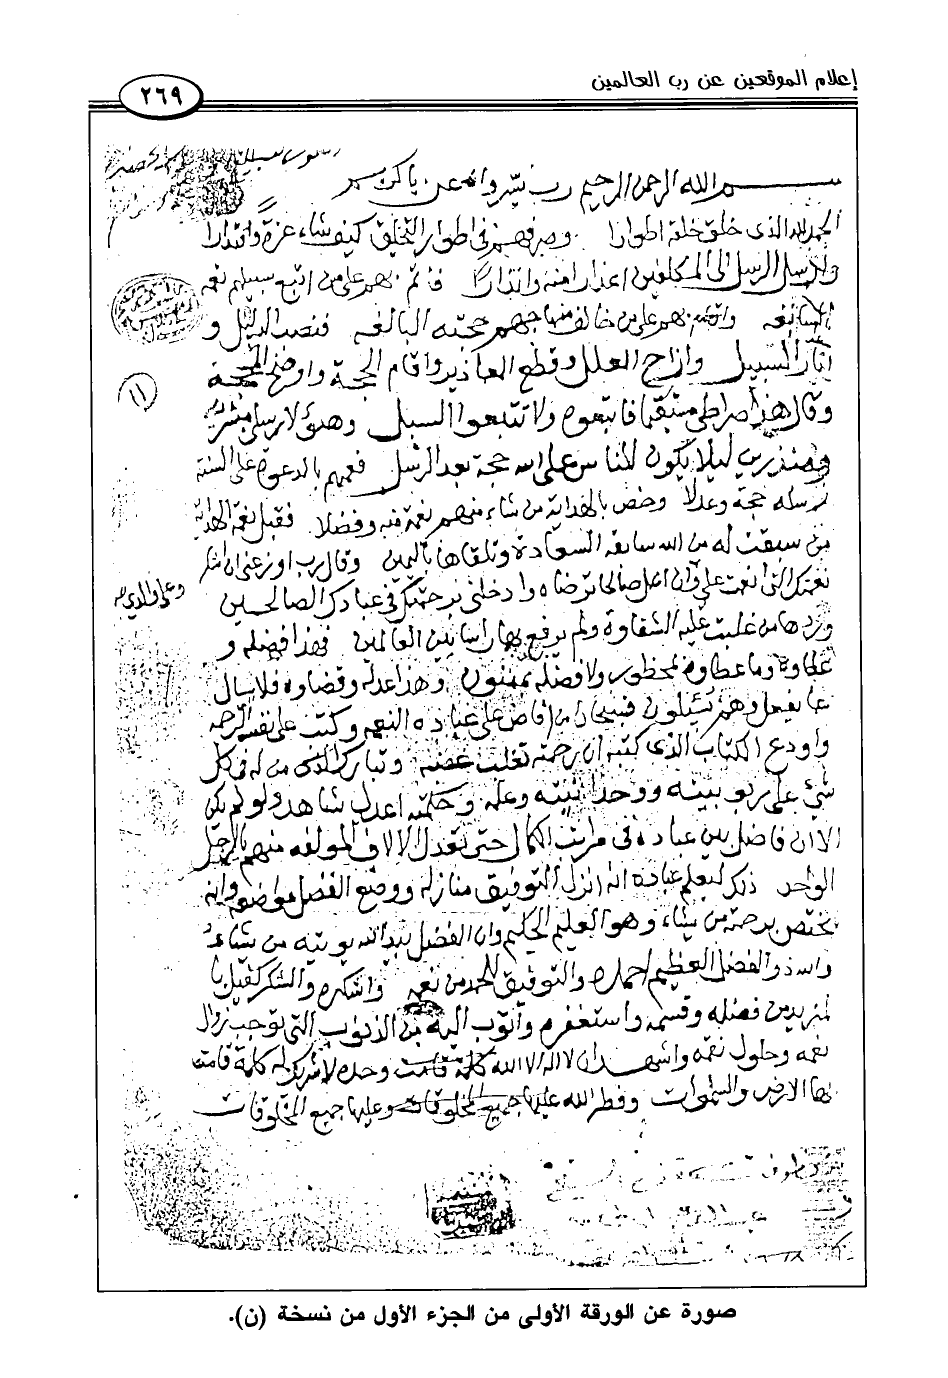 إعلام الموقعين عن رب العالمين
٢٦٩
بسم الله الرحمن الرحيم رب يسر واعن يا كريم
الحمد لله الذى خلق خلقه اطوارا وصرفهم فى اطوار التخليق كيف شاء عزة واقتدارا
وارسل الرسل الى المكلفين اعذارا منه وانذارا فاتم بهم على من اتبع سبيلهم نعمه
السابغه واقام بهم على من خالف مناهجهم حجته البالغه فنصب الدليل و
انار السبيل وازاح العلل وقطع المعاذير واقام الحجة واوضح المحجة
وقال هذا صراطى مستقيما فاتبعوه ولا تتبعوا السبل وهولاء رسلى مبشرين
ومنذرين ليلا يكون للناس على الله حجة بعد الرسل فعمهم بالدعوة على السنة
رسله حجة وعدلا وخص بالهداية من شاء منهم نعمة منه وفضلا فقبل نعمة الهداية
من سبقت له من الله سابقة السعادة وتلقاها باليمين وقال رب اوزعنى ان اشكر
نعمتك التى انعمت على وان اعمل صالحا ترضاه وادخلنى برحمتك فى عبادك الصالحين
وعلى والدي
وردها من غلبت عليه الشقاوة ولم يرفع بها راسا بين العالمين فهذا فضله و
عطاوه وما عطاوه بمحظور ولا فضله بممنون وهذا عدله وقضاوه فلا يسال
عما يفعل وهم يسئلون فسبحان من افاض على عباده النعم وكتب على نفسه الرحمه
واودع الكتاب الذى كتبه ان رحمته تغلب غضبه وتبارك الذى من له فى كل
شئ على ربوبيته ووحدانيته وعلمه وحكمته اعدل شاهد ولو لم يكن
الا ان فاضل بين عباده فى مراتب الكمال حتى تعدل الالاف المولفه منهم بالرجل
الواحد ذلك ليعلم عباده انه انزل التوفيق منازله ووضع الفضل مواضعه وانه
يختص برحمته من يشاء وهو العليم الحكيم وان الفضل بيد الله يوتيه من يشاء
والله ذو الفضل العظيم احمده والتوفيق للحمد من نعمه واشكره والشكر كفيل با
لمزيد من فضله وقسمه واستغفره واتوب اليه من الذنوب التى توجب زوال
نعمه وحلول نقمه واشهد ان لا اله الا الله وحده لا شريك له كلمة قامت
بها الارض والسموات وفطر الله عليها جميع المخلوقات
صورة عن الورقة الأولى من الجزء الأول من نسخة (ن).